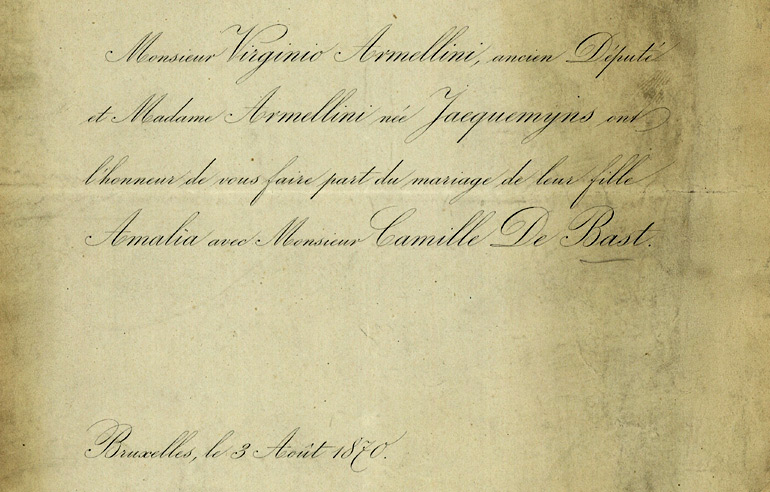 Monsieur Virginio Armellini, ancien Député
et Madame Armellini née Jacquemyns ont
l'honneur de vous faire part du mariage de leur fille
Amalia avec Monsieur Camille De Bast.
Bruxelles, le 3 Août 1870.